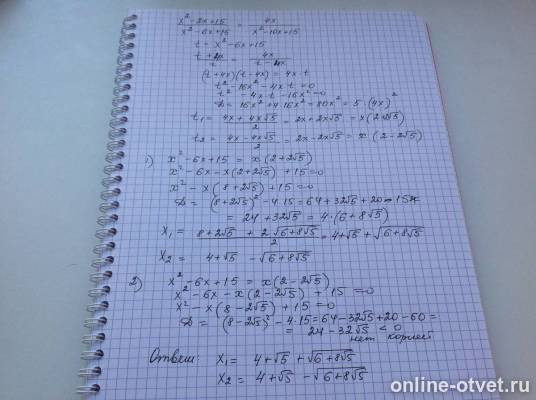 x² - 2x + 15 / x² - 6x + 15 = 4x / x² - 10x + 15
t = x² - 6x + 15
t + 4x / t = 4x / t - 4x
(t + 4x)(t - 4x) = 4x t
t² - 16x² - 4x t = 0
t² - 4x t - 16x² = 0
D = 16x² + 4·16x² = 80x² = 5·(4x)²
t₁ = 4x + 4x√5 / 2 = 2x + 2x√5 = x(2+2√5)
t₂ = 4x - 4x√5 / 2 = 2x - 2x√5 = x(2-2√5)
1) x² - 6x + 15 = x(2+2√5)
x² - 6x - x(2+2√5) + 15 = 0
x² - x(8+2√5) + 15 = 0
D = (8+2√5)² - 4·15 = 64 + 32√5 + 20 -
= 24 + 32√5 = 4·(6+8√5)
x₁ = 8+2√5 + 2√6+8√5 / 2 = 4+√5 + √6+8√5
x₂ = 4+√5 - √6+8√5
2) x² - 6x + 15 = x(2-2√5)
x² - 6x - x(2-2√5) + 15 = 0
x² - x(8-2√5) + 15 = 0
D = (8-2√5)² - 4·15 = 64 - 32√5 + 20 - 60 =
= 24 - 32√5 < 0
нет корней
Ответ: x₁ = 4+√5 + √6+8√5
x₂ = 4+√5 - √6+8√5
online-otvet.ru